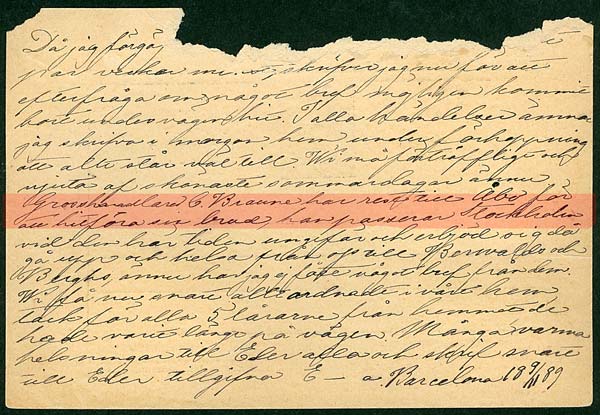 Då jag förgä
par veckor nu. skrifver jag nu för att
efterfråga om något bref möjligen kommit
bort under vägen hit. I alla händelser ämnar
jag skrifva i morgon hem under förhoppning
att allt står väl till Wi må förträffligt och
njuta af skönaste sommardagar ännu
Grosshandlare C. Braune har rest till Åbo för
att hitföra sin brud, han passerar Stockholm
vid den här tiden ungefär och erbjöd sig då
gå upp och helsa från oss till Berwalds och
Berghs, ännu har jag ej fått något bref från dem.
Wi få nu snart allt ordnadt i vårt hem,
tack för alla 5 lårarne från hemmet de
hade varit länge på vägen. Många varma
helsningar till Eder alla och skrif snart
till Eder tillgifna E — a. Barcelona 18 9/11 89